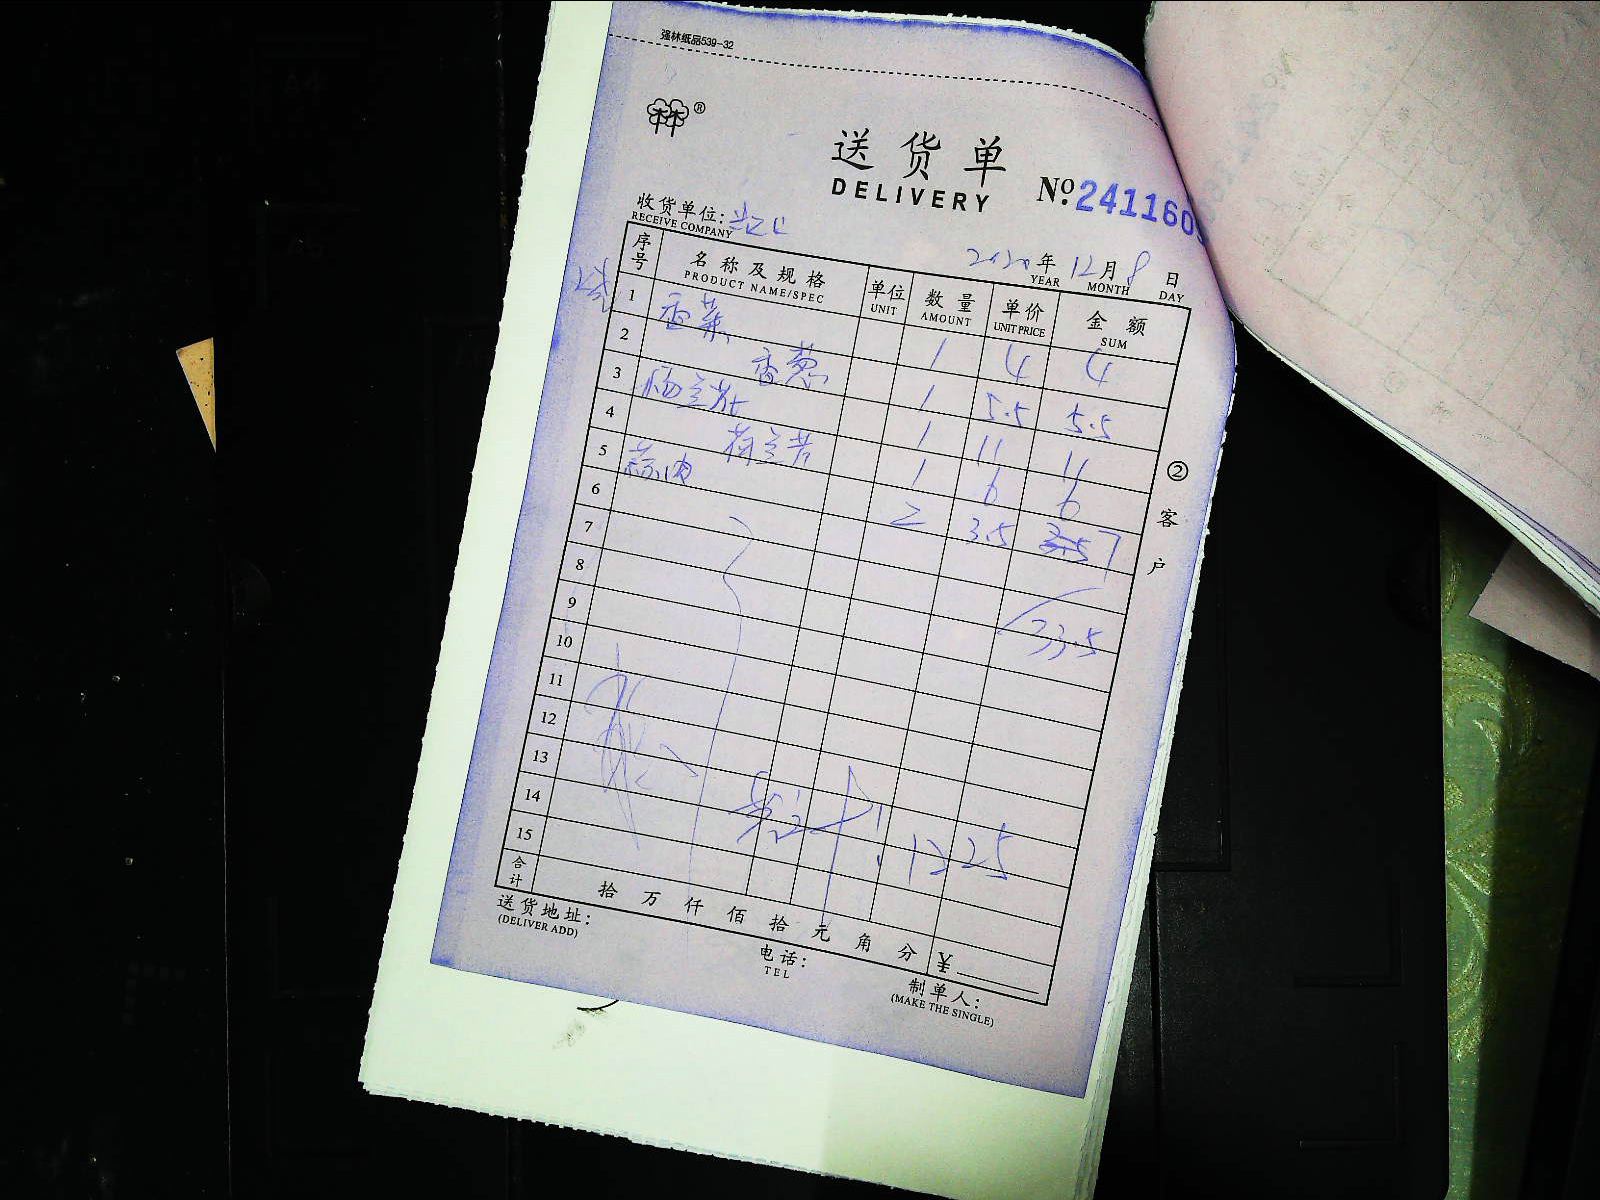 强林纸品539-32
®
送货单
DELIVERY
No. 241160
收货单位:
RECEIVE COMPANY
2020年12月8日
YEAR MONTH DAY
序号 名称及规格 单位 数量 单价 金额
PRODUCT NAME/SPEC UNIT AMOUNT UNIT PRICE SUM
1 香菜 1 4 4
2 香葱 1 5.5 5.5
3 1 11 11
4 1 6 6
5 蒜肉 2 3.5 7
6
7 33.5
8
9
10
11
12
13
14
15 1225
合计 拾万仟佰拾元角分 ¥
送货地址:
(DELIVER ADD)
电话:
TEL
制单人:
(MAKE THE SINGLE)
②客户